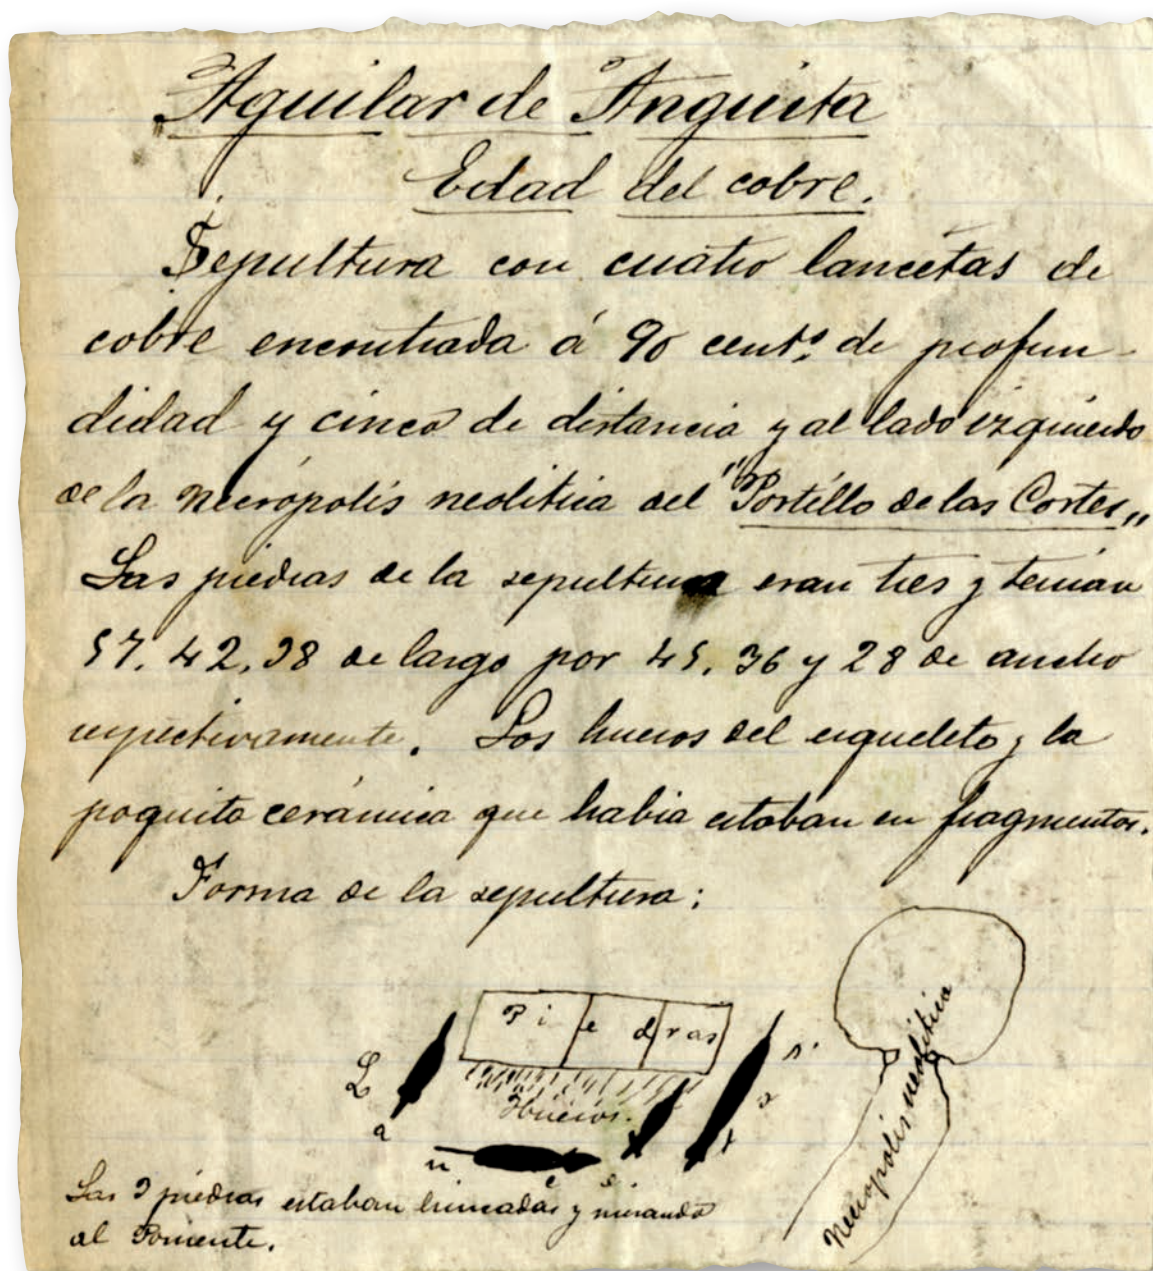 Aguilar de Anguita
Edad del cobre.
Sepultura con cuatro lancetas de
cobre encontrada á 90 cent.s de profun-
didad y cinco de distancia y al lado izquierdo
de la necrópolis neolitica del "Portillo de las Cortes„
Las piedras de la sepultura eran tres y tenian
57. 42, 38 de largo por 45, 36 y 28 de ancho
respectivamente. Los huesos del esqueleto y la
poquita cerámica que habia estaban en fragmentos.
Forma de la sepultura:
Piedras
Huesos.
L a n c e t a s.
Necrópolis neolitica
Las 3 piedras estaban hincadas y mirando
al Poniente.